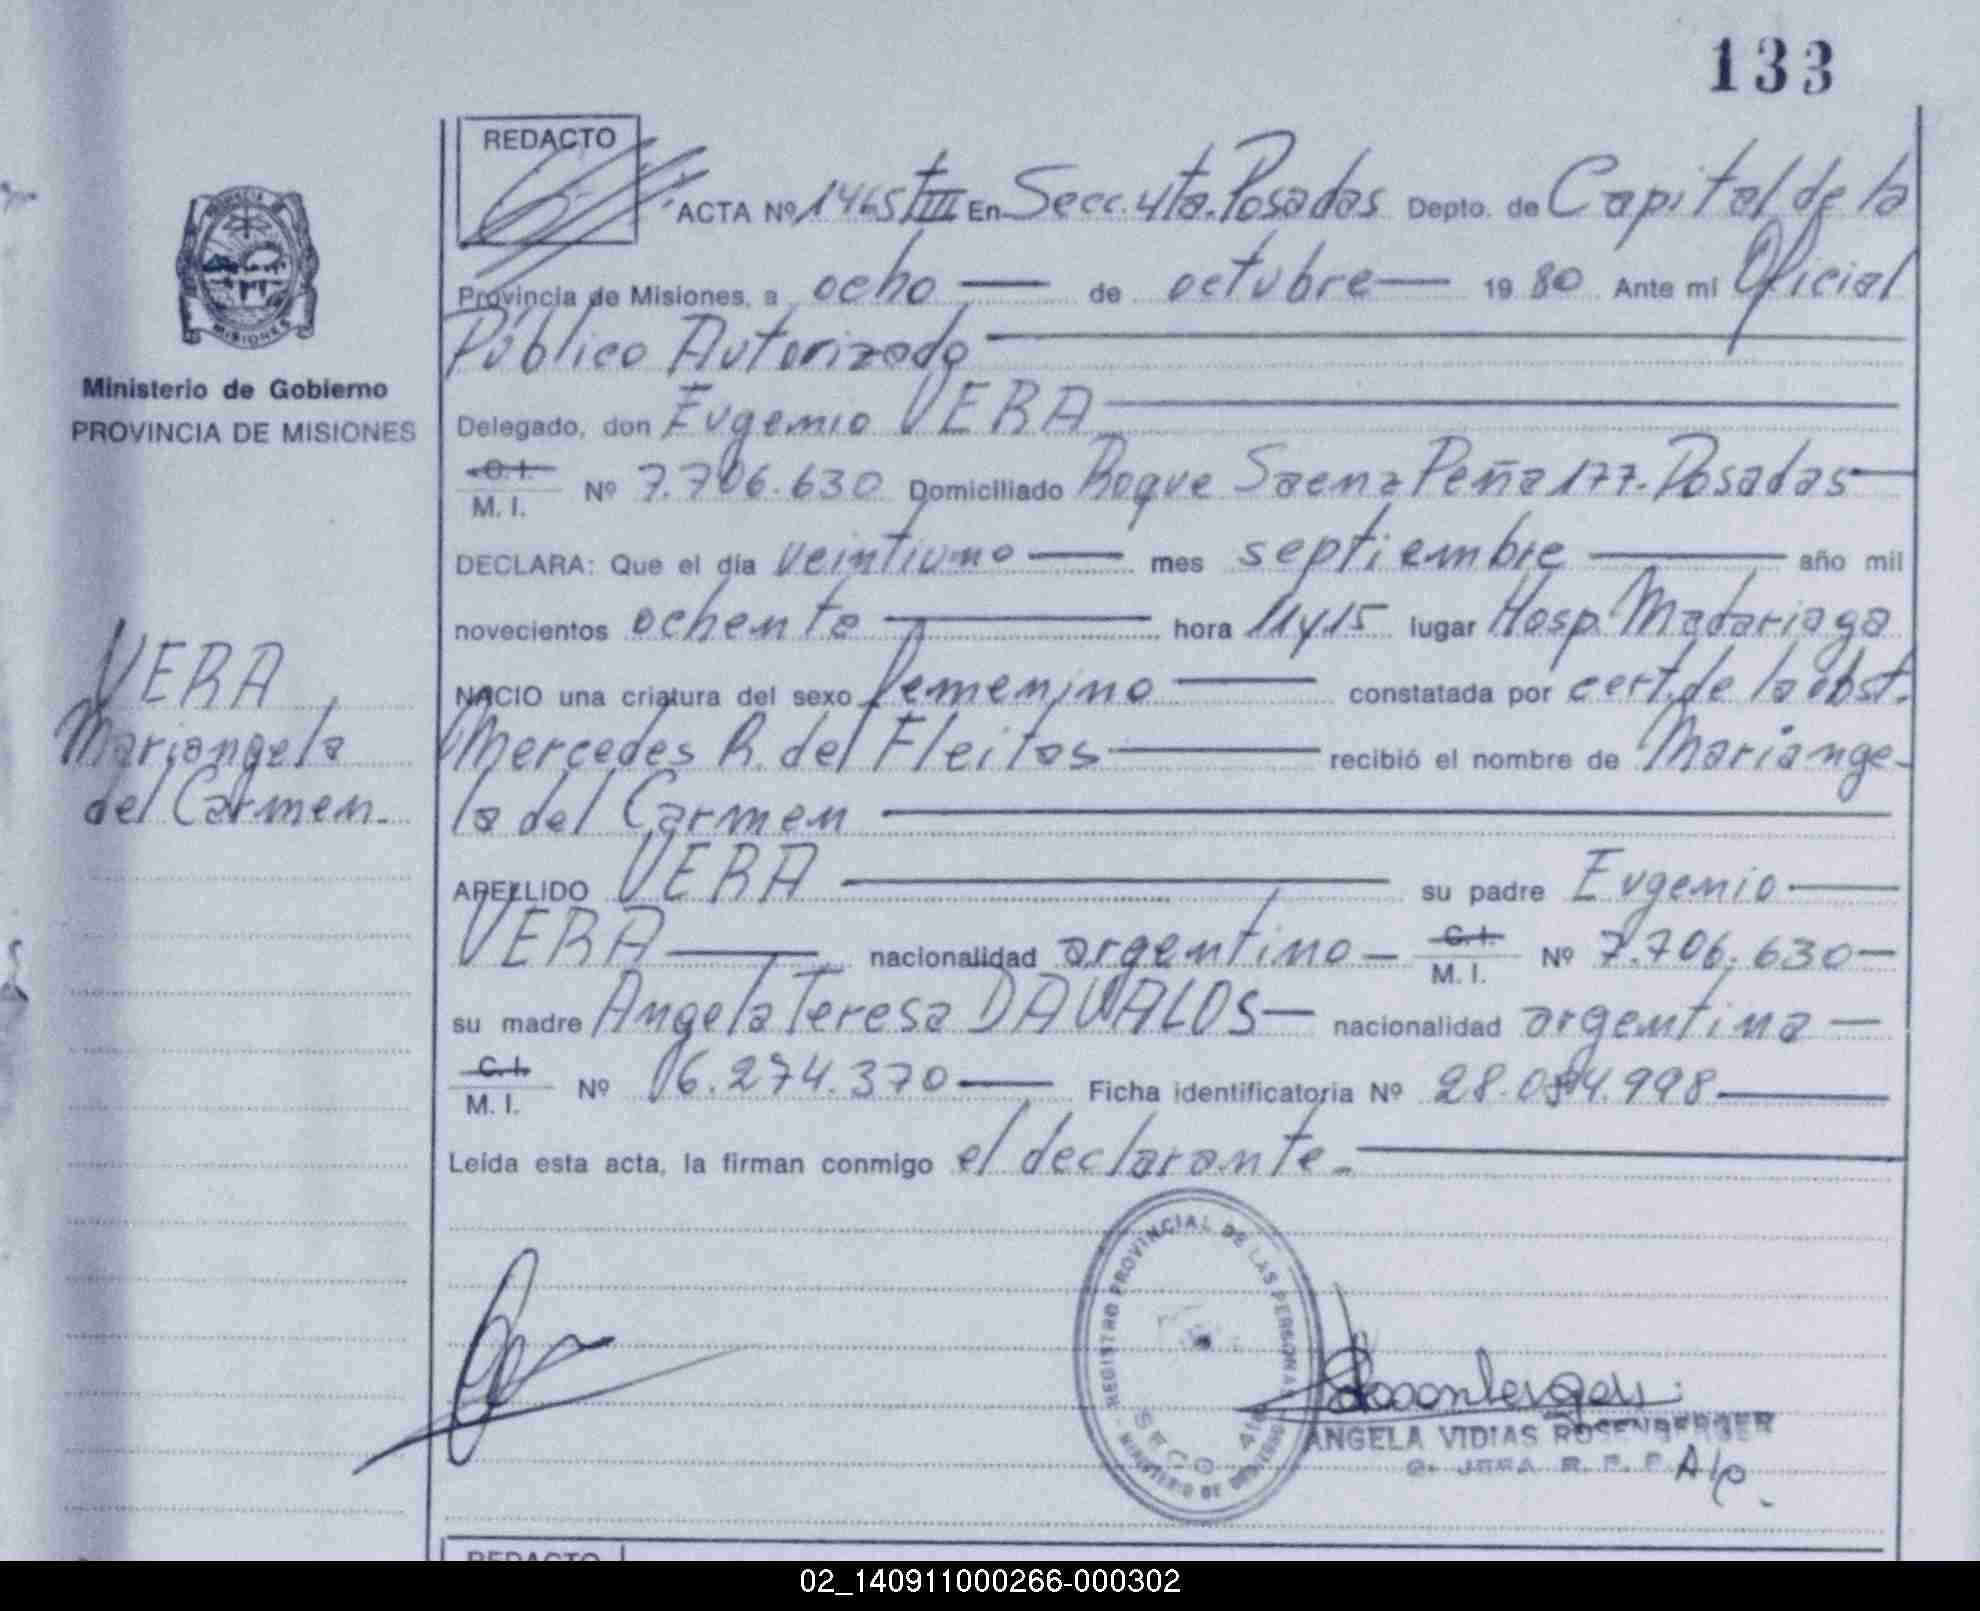 133
REDACTO
ACTA Nº 1465 tIII En Secc. 4ta. Posadas Depto. de Capital de la
Provincia de Misiones, a ocho de octubre 1980 Ante mi Oficial
Público Autorizado
Delegado, don Eugenio VERA
C.I.
M. I. Nº 7.706.630 Domiciliado Roque Saenz Peña 177. Posadas
DECLARA: Que el día veintiuno mes septiembre año mil
novecientos ochenta hora 11 y 15 lugar Hosp. Madariaga
NACIO una criatura del sexo femenino constatada por cert. de la obst.
Mercedes R. del Fleitas recibió el nombre de Mariange-
la del Carmen
APELLIDO VERA su padre Eugenio
VERA nacionalidad argentino C.I. M. I. Nº 7.706.630
su madre Angela Teresa DAVALOS nacionalidad argentina
C.I.
M. I. Nº 6.274.370 Ficha identificatoria Nº 28.084.998
Leída esta acta, la firman conmigo el declarante.
PROVINCIA DE
MISIONES
Ministerio de Gobierno
PROVINCIA DE MISIONES
VERA
Mariangela
del Carmen.
REGISTRO PROVINCIAL DE LAS PERSONAS
MINISTERIO DE GOBIERNO
SECC 4ta
ANGELA VIDIAS ROSENBERGER
A/c.
REDACTO
02_140911000266-000302